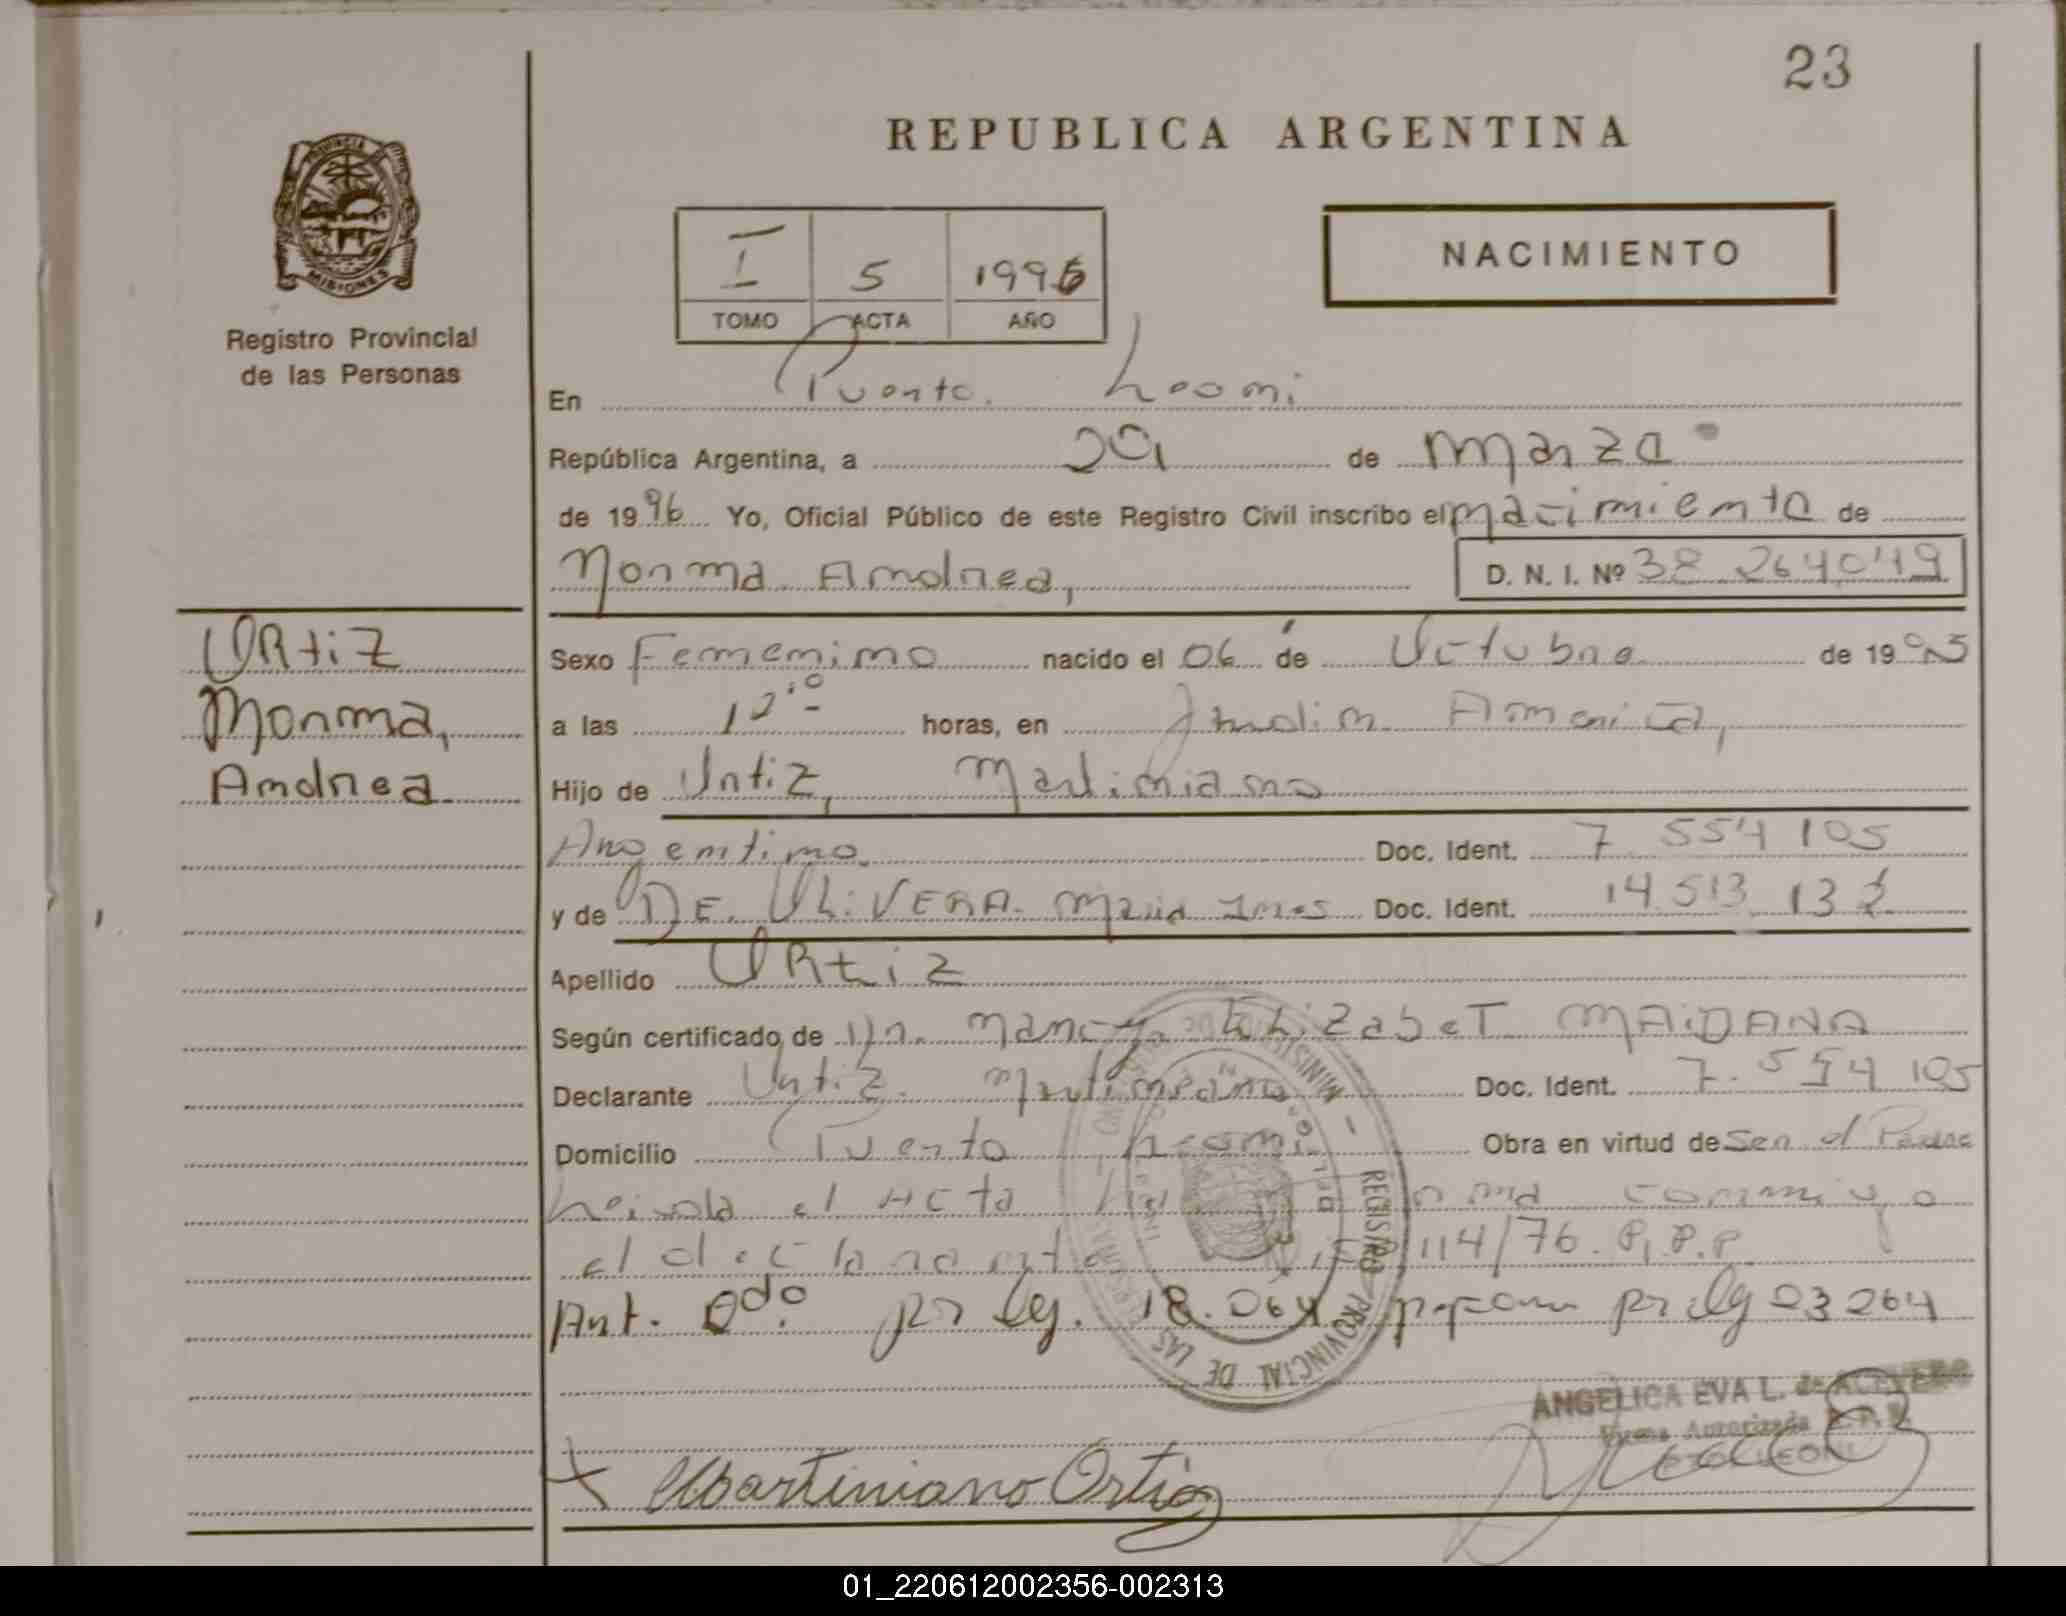 23
REPUBLICA ARGENTINA
PROVINCIA DE MISIONES
Registro Provincial
de las Personas
I 5 1996
TOMO ACTA AÑO
NACIMIENTO
En Puerto Leoni
República Argentina, a 29 de Marzo
de 1996 Yo, Oficial Público de este Registro Civil inscribo el nacimiento de
Norma Andrea, D. N. I. Nº 38 264049
Ortiz
Norma,
Andrea
Sexo Femenino nacido el 06 de Octubre de 1995
a las horas, en Jardin America,
Hijo de Ortiz, Martiniano
Argentino. Doc. Ident. 7 554 105
y de DE OLiVERA Maria Ines Doc. Ident. 14 513 132
Apellido ORtiz
Según certificado de Dra. Nancy Elizabet MAiDANA
Declarante Ortiz. Martiniano Doc. Ident. 7.554 105
Domicilio Puerto Leoni Obra en virtud de Ser el Padre
Leida el Acta conmigo
el declarante 114/76. P.P.P
Ant. por Ley. 18.064 por Ley 23264
REGISTRO PROVINCIAL DE LAS
ANGELICA EVA L. de
Firma Autorizada R. P. P.
LEONI
Martiniano Ortiz
01_220612002356-002313